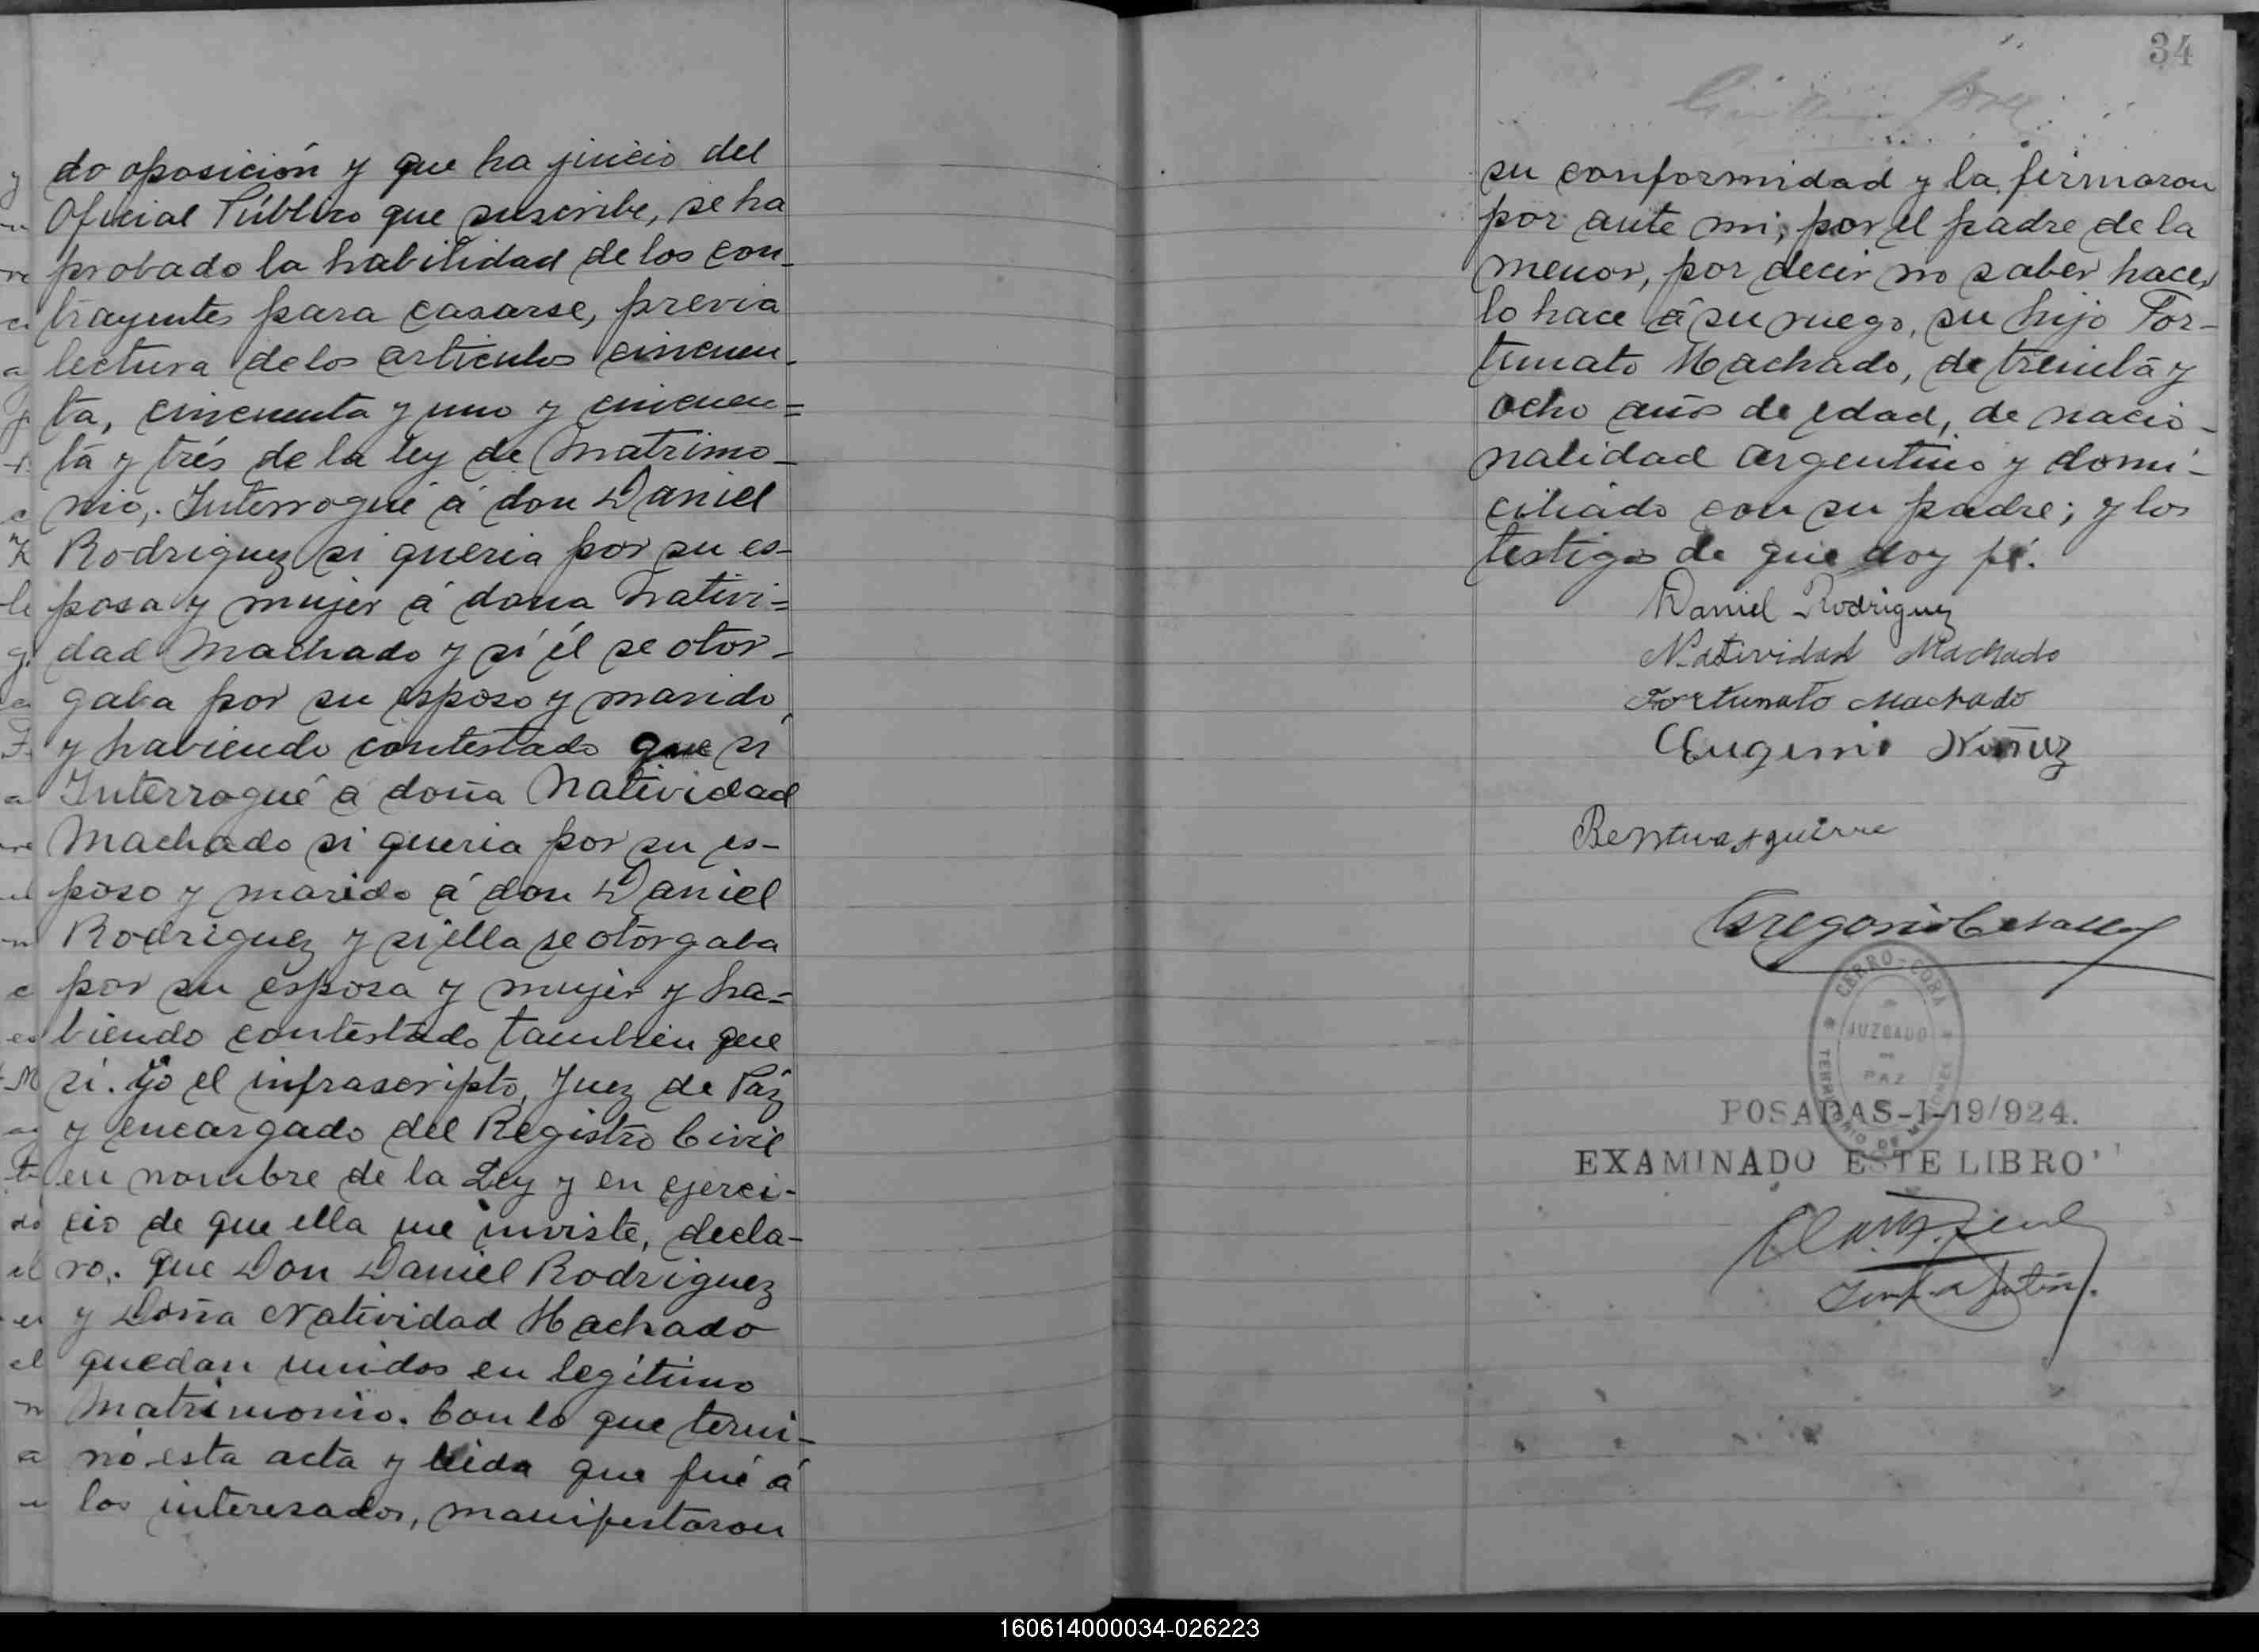 do oposición y que ha juicio del
Oficial Público que suscribe, se ha
probado la habilidad de los con-
trayentes para casarse, previa
lectura de los articulos cincuen-
ta, cincuenta y uno y cincuen=
ta y trés de la ley de Matrimo-
nio,. Interrogué á don Daniel
Rodriguez si queria por su es-
posa y mujer á dona Nativi=
dad Machado y si él se otor-
gaba por su esposo y marido,
y haviendo contestado que si
Interrogué á doña Natividad
Machado si queria por su es-
poso y marido á don Daniel
Rodriguez y si ella se otorgaba
por su esposa y mujer y ha=
biendo contestado tambien que
si. Yo el infrascripto, Juez de Páz
y encargado del Registro Civil
en nombre de la Ley y en ejerci-
cio de que ella me inviste, decla-
ro,. que Don Daniel Rodriguez
y Doña Natividad Machado
quedan unidos en legítimo
Matrimonio. Con lo que termi-
nó esta acta y leida que fué á
los interesados, manifestaron
34
su conformidad y la firmaron
por ante mi; por el padre de la
menor, por decir no saber hacer
lo hace á su ruego, su hijo For-
tunato Machado, de treinta y
ocho años de edad, de nacio-
nalidad argentino y domi-
ciliado con su padre; y los
testigos de que doy fé.
Daniel Rodriguez
Natividad Machado
Fortunato Machado
Eugenio Nuñez
Aguirre
Gregorio Cevallos
CERRO-CORA
JUZGADO
DE
PAZ
TERRITORIO DE MISIONES
POSADAS-I-19/924.
EXAMINADO ESTE LIBRO
160614000034-026223